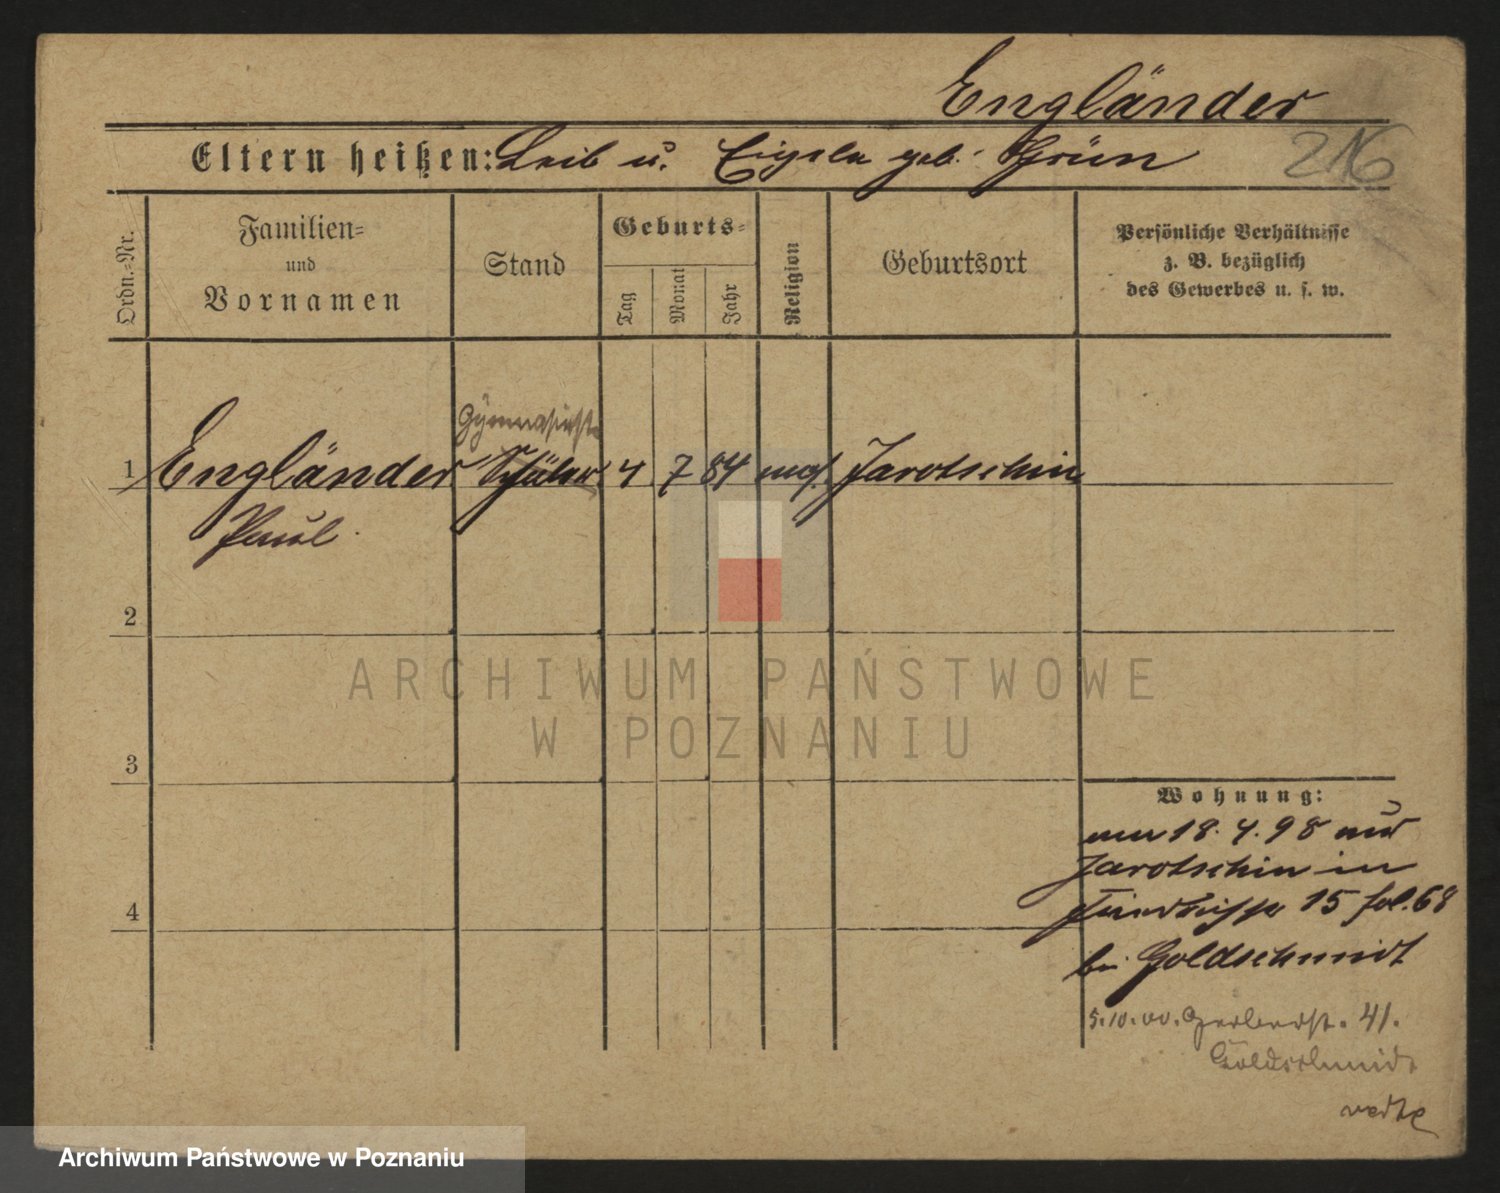 Engländer
Eltern heißen: Leib u. geb. Grün
216
Ordn.-Nr.
Familien-
und
Vornamen
Stand
Geburts-
Tag
Monat
Jahr
Religion
Geburtsort
Persönliche Verhältnisse
z. B. bezüglich
des Gewerbes u. s. w.
Gymnasiast
1 Engländer Schüler 4 7 84 mos. Jarotschin
Paul
2
ARCHIWUM PAŃSTWOWE
W POZNANIU
3
Wohnung:
18.4.98 aus
Jarotschin in
15 fol. 68
4
bei Goldschmidt
5.10.00. Gerberst. 41.
Goldschmidt
Archiwum Państwowe w Poznaniu